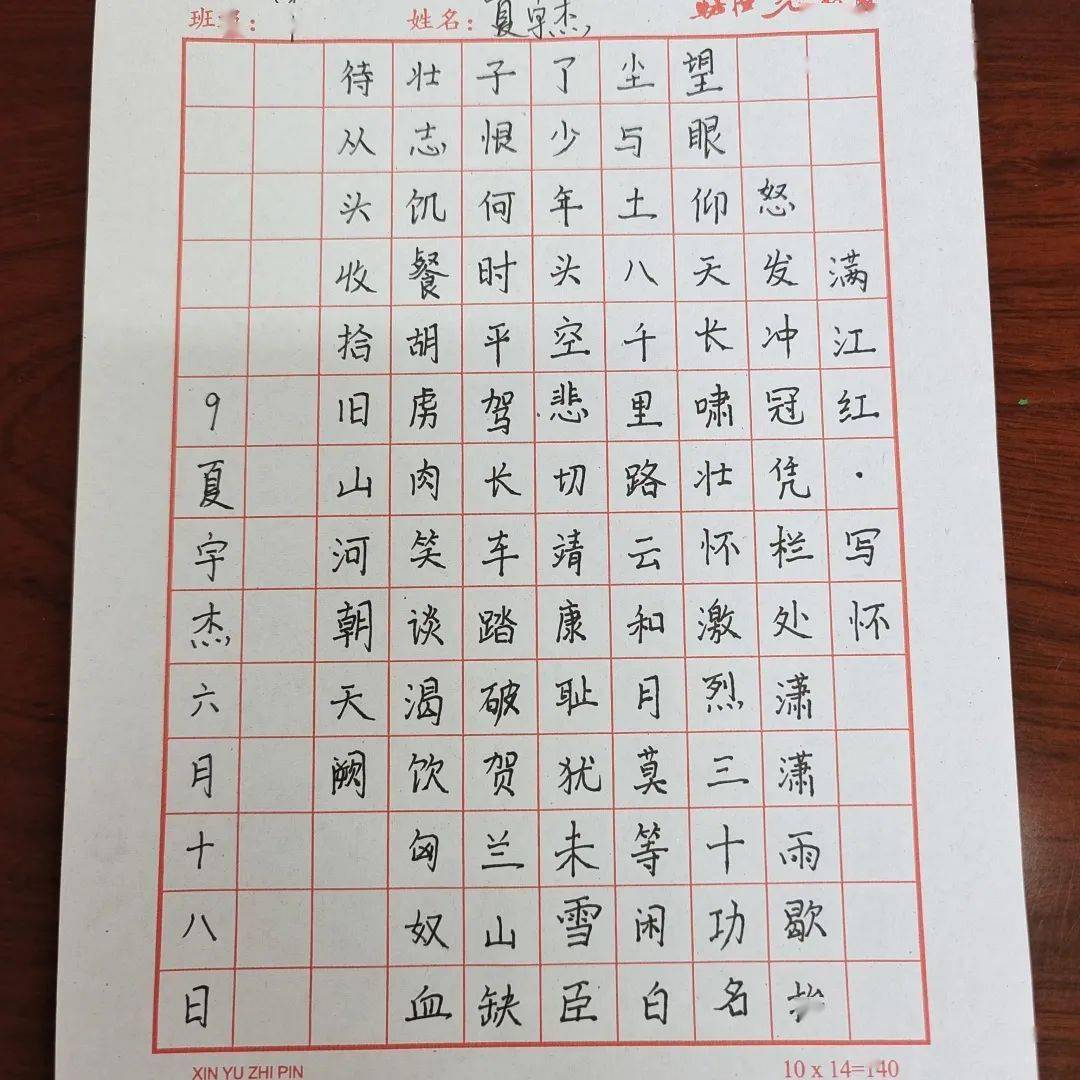 姓名：夏宇杰
满江红·写怀
怒发冲冠凭栏处潇潇雨歇抬
望眼仰天长啸壮怀激烈三十功名
尘与土八千里路云和月莫等闲白
了少年头空悲切靖康耻犹未雪臣
子恨何时平驾长车踏破贺兰山缺
壮志饥餐胡虏肉笑谈渴饮匈奴血
待从头收拾旧山河朝天阙
9夏宇杰六月十八日
XIN YU ZHI PIN
10 x 14=140